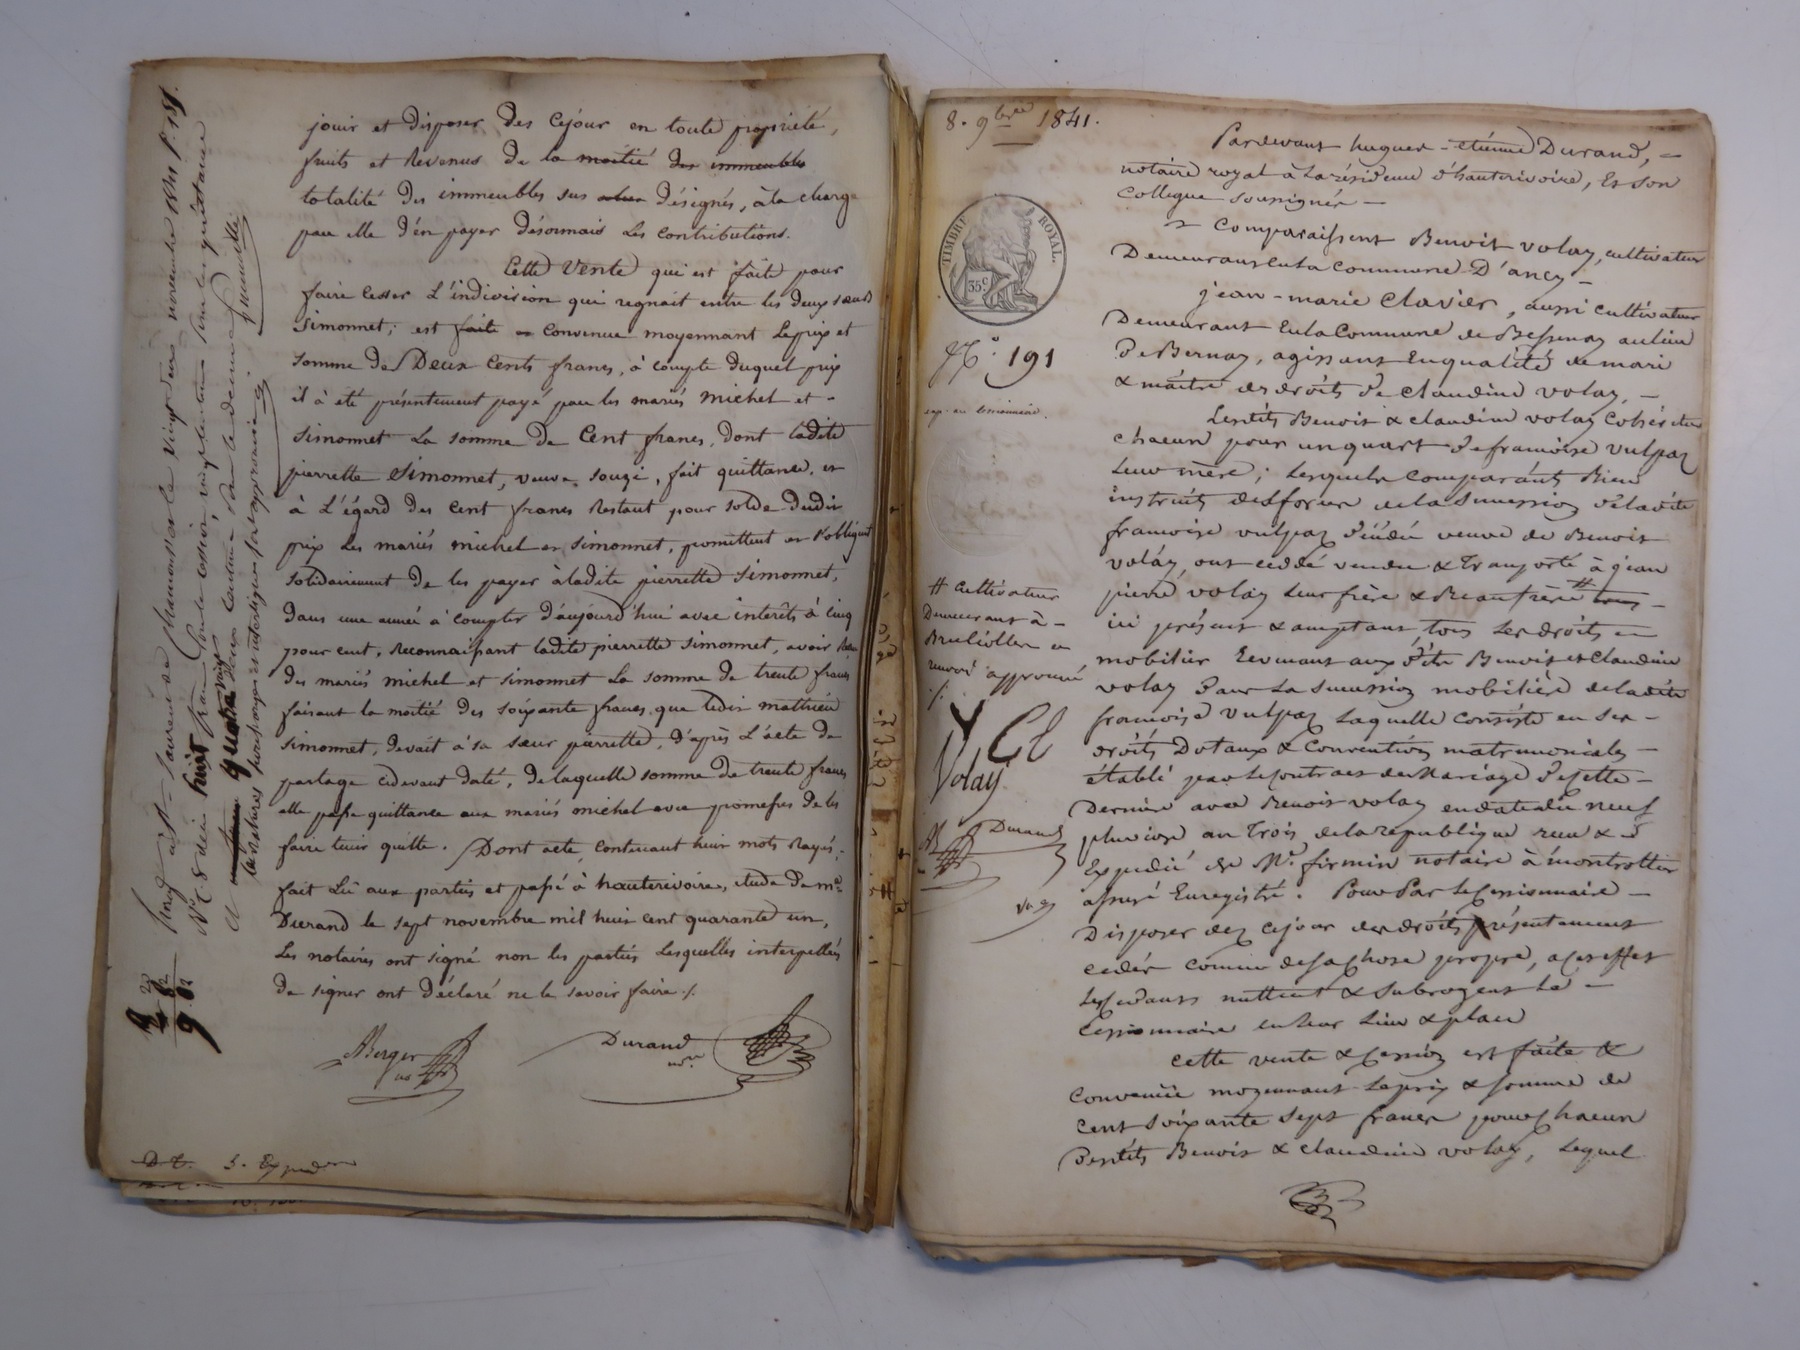 jouir et disposer des cejour en toute propriété,
fruits et revenus de la moitié des immeubles
totalité des immeubles sus désignés, à la charge
par elle d'en payer désormais les contributions.
Cette vente qui est faite pour
faire cesser l'indivision qui regnait entre les deux sœurs
Simonnet, est faite convenue moyennant le prix et
somme de Deux cents francs, à compte duquel prix
il à été présentement payé par les mariés michel et -
Simonnet la somme de Cent francs, dont ladite
pierrette Simonnet, veuve souzi, fait quittance, et
à l'égard des cent francs restant pour solde dudit
prix les mariés michel et Simonnet, promettent et s'obligent
solidairement de les payer à ladite pierrette Simonnet,
dans une année à compter d'aujourd'hui avec intérêts à cinq
pour cent, reconnaissant ladite pierrette Simonnet, avoir reçu
des mariés michel et Simonnet la somme de trente francs
faisant la moitié des soixante francs que ledit mathieu
Simonnet, devait à sa sœur pierrette, d'après l'acte de
partage cidevant daté, de laquelle somme de trente francs
elle passe quittance aux mariés michel avec promesses de les
faire tenir quitte. Dont acte, contenant huit mots rayés,
fait lû aux parties et passé à hauterivoire, étude de me
Durand le sept novembre mil huit cent quarante un,
Les notaires ont signé non les parties lesquelles interpellés
de signer ont déclaré ne le savoir faire ./.
Berger
Durand
nre
D.E. 5. Exped
Enregistré à St Laurent de chamousset le vingt deux novembre 1841 f. 181.
No C 8 reçu huit francs pour la cession, vingt centimes pour les quittances
et quatre vingt deux centimes, pour le décime
8 20
82
9.02
8. 9bre 1841.
TIMBRE ROYAL.
35c.
No. 191
exp. au cessionnaire.
Pardevant hugues - etienne Durand, -
notaire royal à la résidence d'hauterivoire, et son
Collegue soussignés -
Comparaissent Benoit volay, cultivateur
Demeurant en la commune D'ancy -
jean - marie Clavier, aussi cultivateur
Demeurant en la Commune de Bessenay au lieu
De Bernay, agissant en qualité de mari
& maître des droits de Claudine volay, -
Lesdits Benoit & claudine volay Cohéritiers
chacun pour un quart de francoise vulpaz
leur mère; lesquels comparants Bien
instruits des forces de la succession de ladite
francoise vulpaz décédée veuve de Benoit
volay, ont cedé vendu & transporté à jean
pierre volay leur frère & Beaufrère # tous -
ici présent & acceptant, tous les droits -
mobilier revenant aux dits Benoit et Claudine
volay Dans la succession mobilière de ladite
francoise vulpaz laquelle consiste en ses -
droits Dotaux & Conventions matrimoniales -
établi par le contrat de Mariage de cette -
Dernière avec Benoit volay en date du neuf
pluviose an trois de la république reçu &
Expedié de Me. firmin notaire à montrottier
assuré Enregistré. Pour Par le Cessionnaire -
Disposer dez cejour des droits présentement
cedés comme de sa chose propre, a cet effet
les cedants mettent & subrogent le -
Cessionnaire en leur lieu & place
Cette vente & cession est faite &
convenüe moyennant le prix & somme de
Cent soixante sept francs pour chacun
Desdits Benoit & claudine volay, lequel
# Cultivateur
Demeurant à -
Brulliolles en
renvoi approuvé
./.
Volay
Cl
Durand